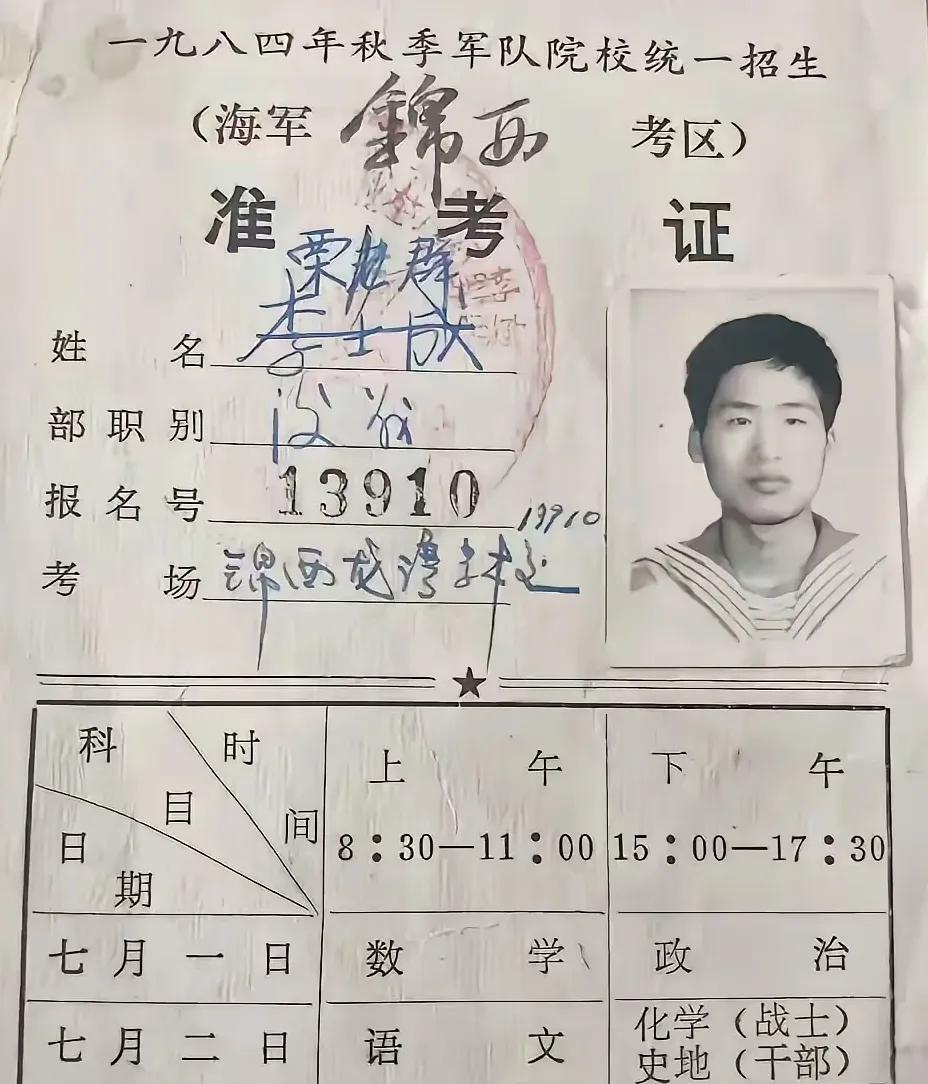 一九八四年秋季军队院校统一招生
（海军 錦西 考区）
准考证
栗 群
姓名 李士成
部职别
报名号 13910 13910
考场 锦西龙湾学校
科目 时间 日期
上午 下午
8：30—11：00 15：00—17：30
七月一日 数学 政治
七月二日 语文 化学（战士）
史地（干部）